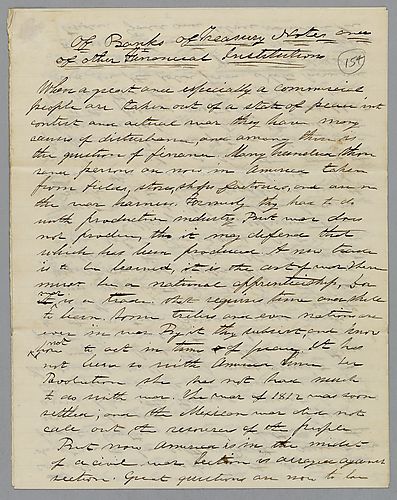 Of Banks of Treasury Notes and
of other Financial Institutions
154
When a great and especially a commercial
people are taken out of a state of peace into
contact and actual war they have many
causes of disturbance, and among them is
the question of finance. Many hundred thou
sand persons are now in America taken
from fields, stores, shops factories, and are in
the war harness. Formerly they had to do
with productive industry. But war does
not produce, tho it may defend that
which has been produced. A new trade
is to be learned, it is the art of war. There
must be a national apprenticeship, for
war
it is a trade that requires time and skill
to learn. Some tribes and even nations are
ever in war. By it they subsist, and know
not
to act in time of peace. It has
not been so with America. Since her
Revolution she has not had much
to do with war. The war of 1812 was soon
settled; and the Mexican war did not
call out the resources of the people
But now America is in the midst
of a civil war. Section is arrayed against
section. Great questions are now to be